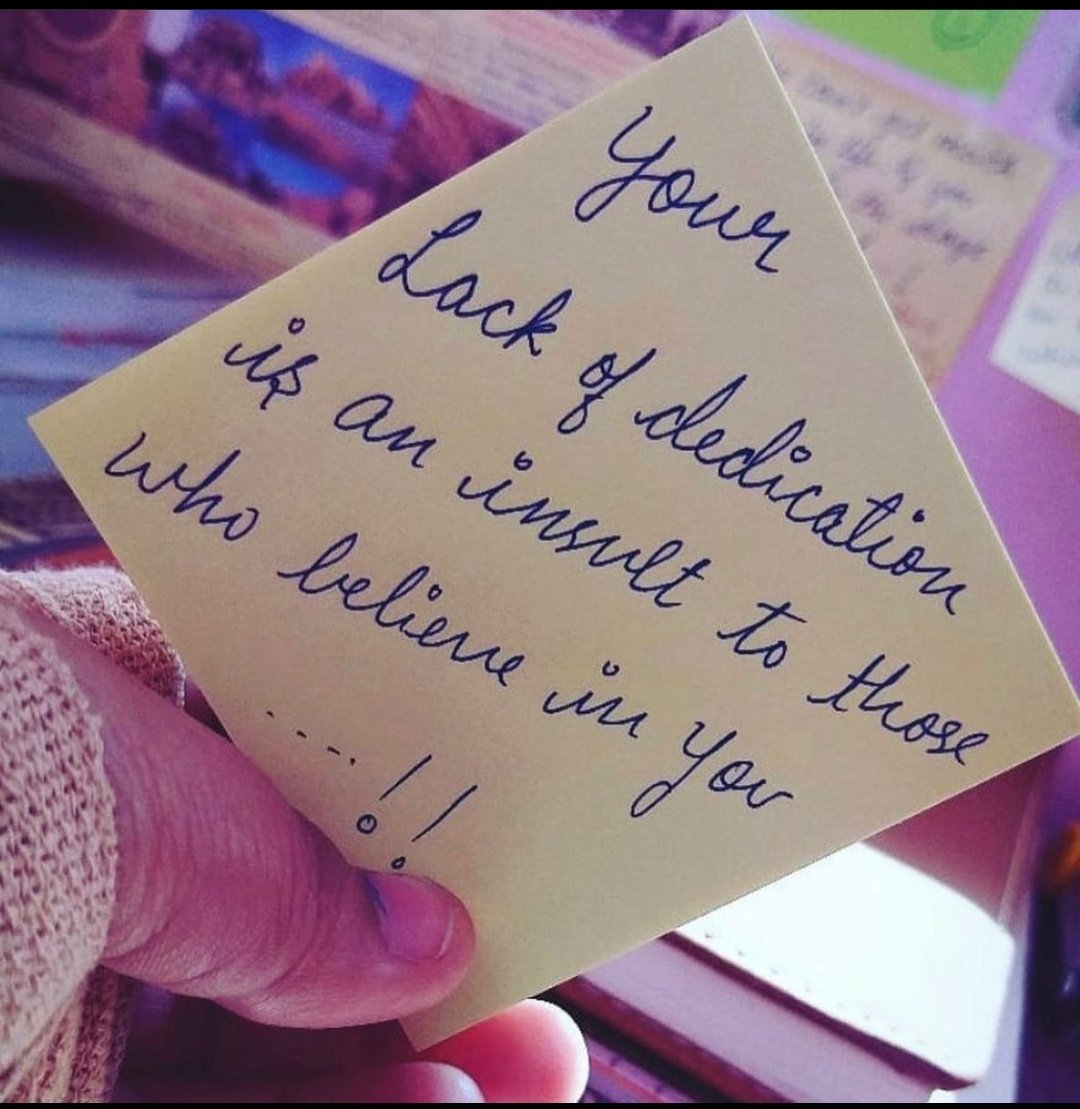 Your
Lack of dedication
is an insult to those
who believe in you
....!!